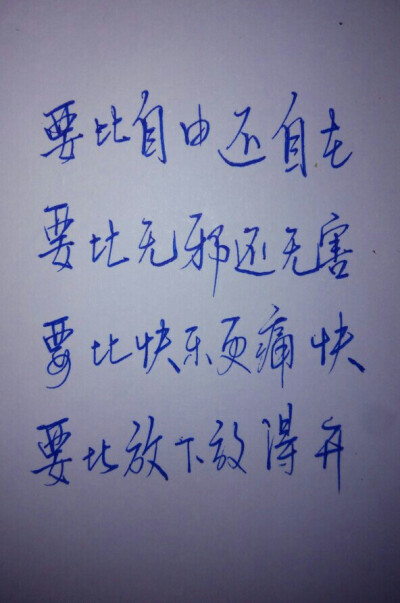 要比自由还自在
要比无邪还无害
要比快乐更痛快
要比放下放得开